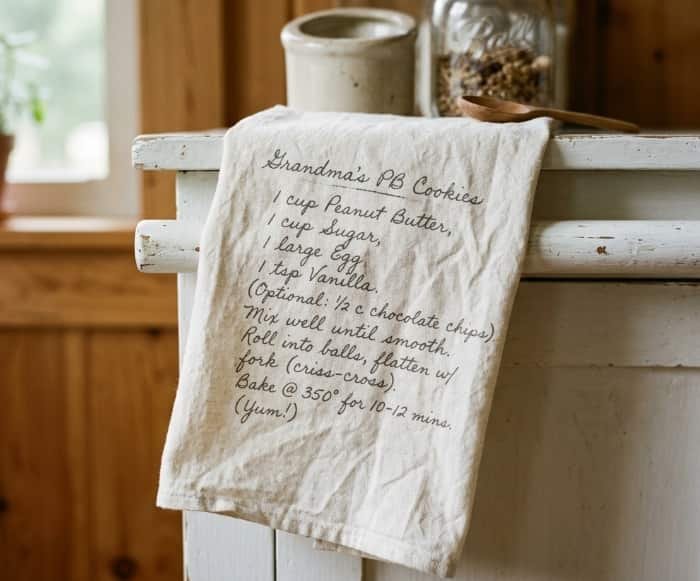 Ball
Grandma's PB Cookies
1 cup Peanut Butter,
1 cup Sugar,
1 large Egg,
1 tsp Vanilla.
(Optional: ½ c chocolate chips)
Mix well until smooth.
Roll into balls, flatten w/
fork (criss-cross).
Bake @ 350° for 10-12 mins.
(Yum!)